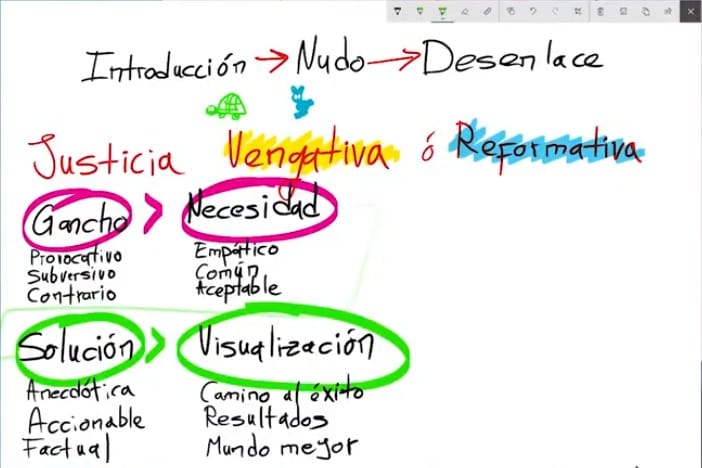 Introducción → Nudo → Desenlace
Justicia Vengativa ó Reformativa
Gancho > Necesidad
Provocativo Empático
Subversivo Común
Contrario Aceptable
Solución > Visualización
Anecdótica Camino al éxito
Accionable Resultados
Factual Mundo mejor